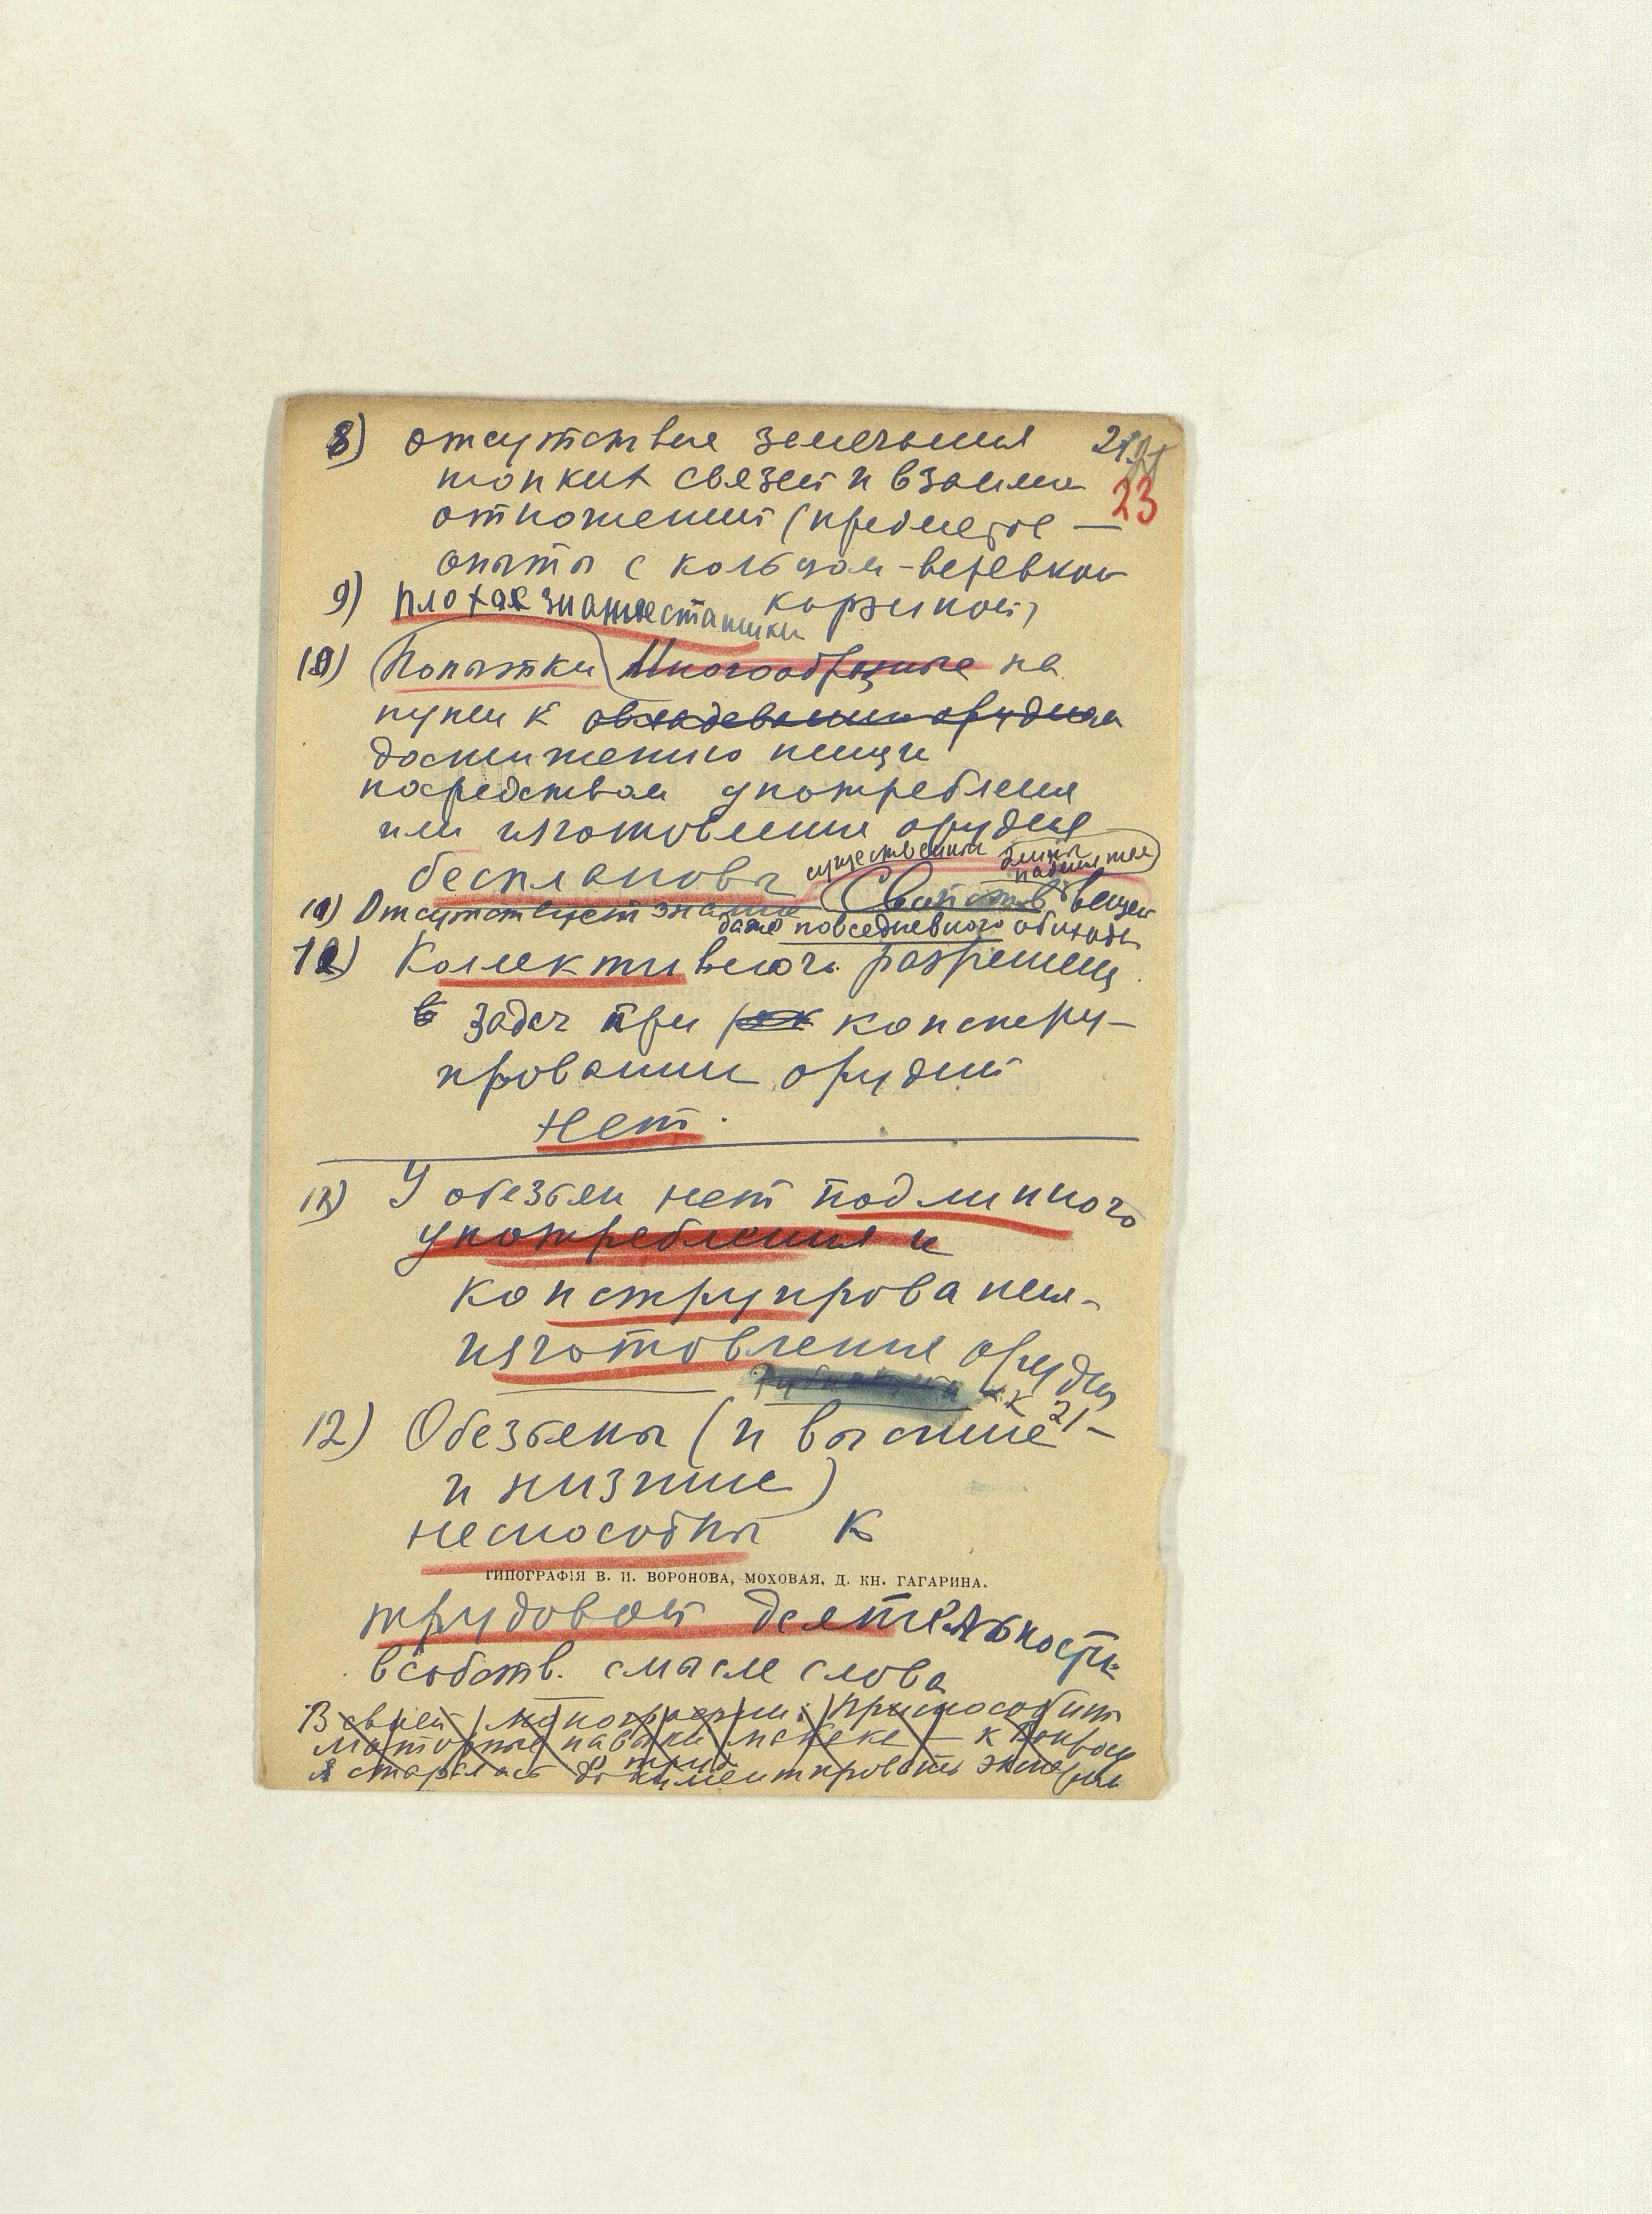 8) отсутствие замечания 21
23
тонких связей и взаимо
отношений (предметов —
опыты с кольцом-веревкой
корзиной)
9) плохая знание статики
10) (Попытки) Многообразные на
пути к овладеванию орудием
достижению пищи
посредством употребления
или изготовления орудия
беспланов
существенных
11) Отсутствует знание Свойств вещей
даже повседневного обихода
12) Коллективного разрешения
в задач при констру-
ировании орудий
нет.
У обезьян нет подлинного
употребления и
конструирования-
изготовления орудия
12) Обезьяны (и высшие —
и низшие)
неспособны к
ТИПОГРАФІЯ В. И. ВОРОНОВА, МОХОВАЯ, Д. КН. ГАГАРИНА.
трудовой деятельности
в собств. смысле слова
В своей монографии: Приспособит
моторные навыки макака — к вопросу
о труде
я старалась документировать экспери